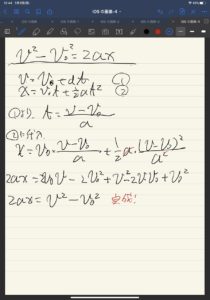 v² - v₀² = 2ax
v = v₀ + at ①
x = v₀t + ½at² ②
①より、t = (v - v₀)/a
②に代入
x = v₀ · (v - v₀)/a + ½ a · (v - v₀)²/a²
2ax = 2v₀v - 2v₀² + v² - 2vv₀ + v₀²
2ax = v² - v₀² 完成!